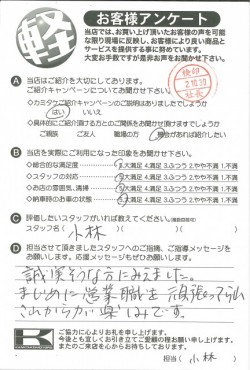 軽
お客様アンケート
当店では、お買い上げ頂いたお客様の声を可能
な限り現場に反映し、お客様により良い商品と
サービスを提供する事に努めています。
大変お手数ですが是非お声をお聞かせ下さい。
A 当店はご紹介を大切にしております。
ご紹介キャンペーンについてお聞かせ下さい。
◇カミタケご紹介キャンペーンのご説明はありましたでしょうか
はい いいえ
◇具体的にご紹介頂ける方とのご関係をお聞かせ頂けますでしょうか
ご親族 ご友人 職場の方 機会があれば紹介したい
B 当店を実際にご利用になった印象をお聞かせ下さい。
◇総合的な満足度 5.大満足 4.満足 3.ふつう 2.やや不満 1.不満
◇スタッフの対応 5.大満足 4.満足 3.ふつう 2.やや不満 1.不満
◇お店の雰囲気、清掃 5.大満足 4.満足 3.ふつう 2.やや不満 1.不満
◇納車時のお車の状態 5.大満足 4.満足 3.ふつう 2.やや不満 1.不満
C 評価したいスタッフがいれば教えてください。
スタッフ名( 小林 )
D 担当させて頂きましたスタッフへのご指摘、ご指導メッセージを
お願いします。応援メッセージもぜひお願いします。
誠実そうな方にみえました。
まじめに営業職を頑張って
これからが楽しみです。
ご協力に心よりお礼を申し上げます。
今後とも宜しくお引き立てご愛顧の程お願い申し上げます。
またのご来店を心からお待ちしております。
担当( 小林 )